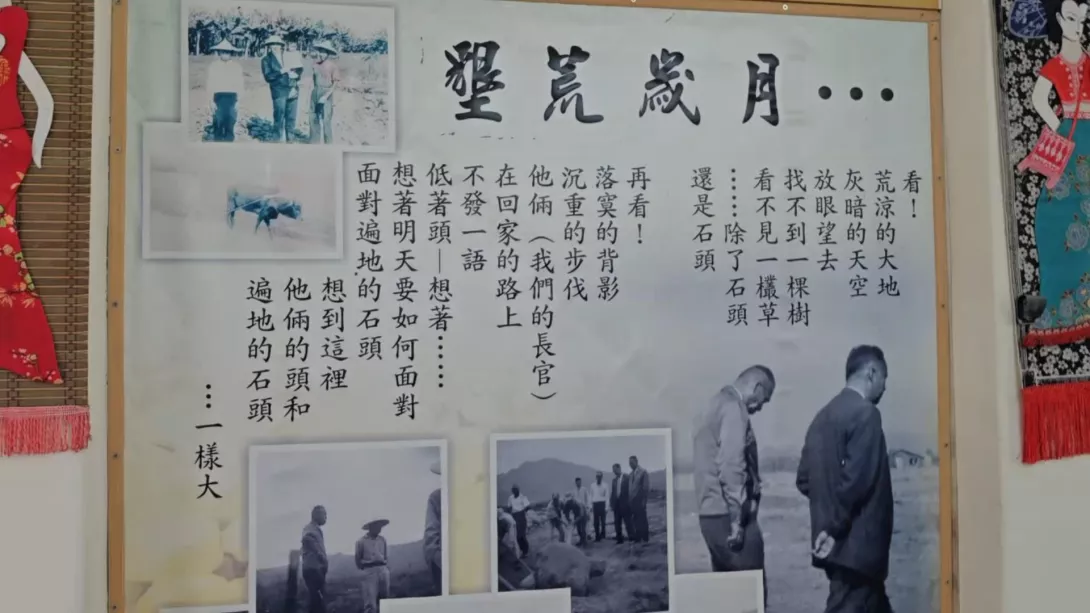 墾荒歲月•••
看！
荒涼的大地
灰暗的天空
放眼望去
找不到一棵樹
看不見一欉草
……除了石頭
還是石頭
再看！
落寞的背影
沉重的步伐
他倆（我們的長官）
在回家的路上
不發一語
低著頭—想著……
想著明天要如何面對
面對遍地的石頭
想到這裡
他倆的頭和
遍地的石頭
…一樣大